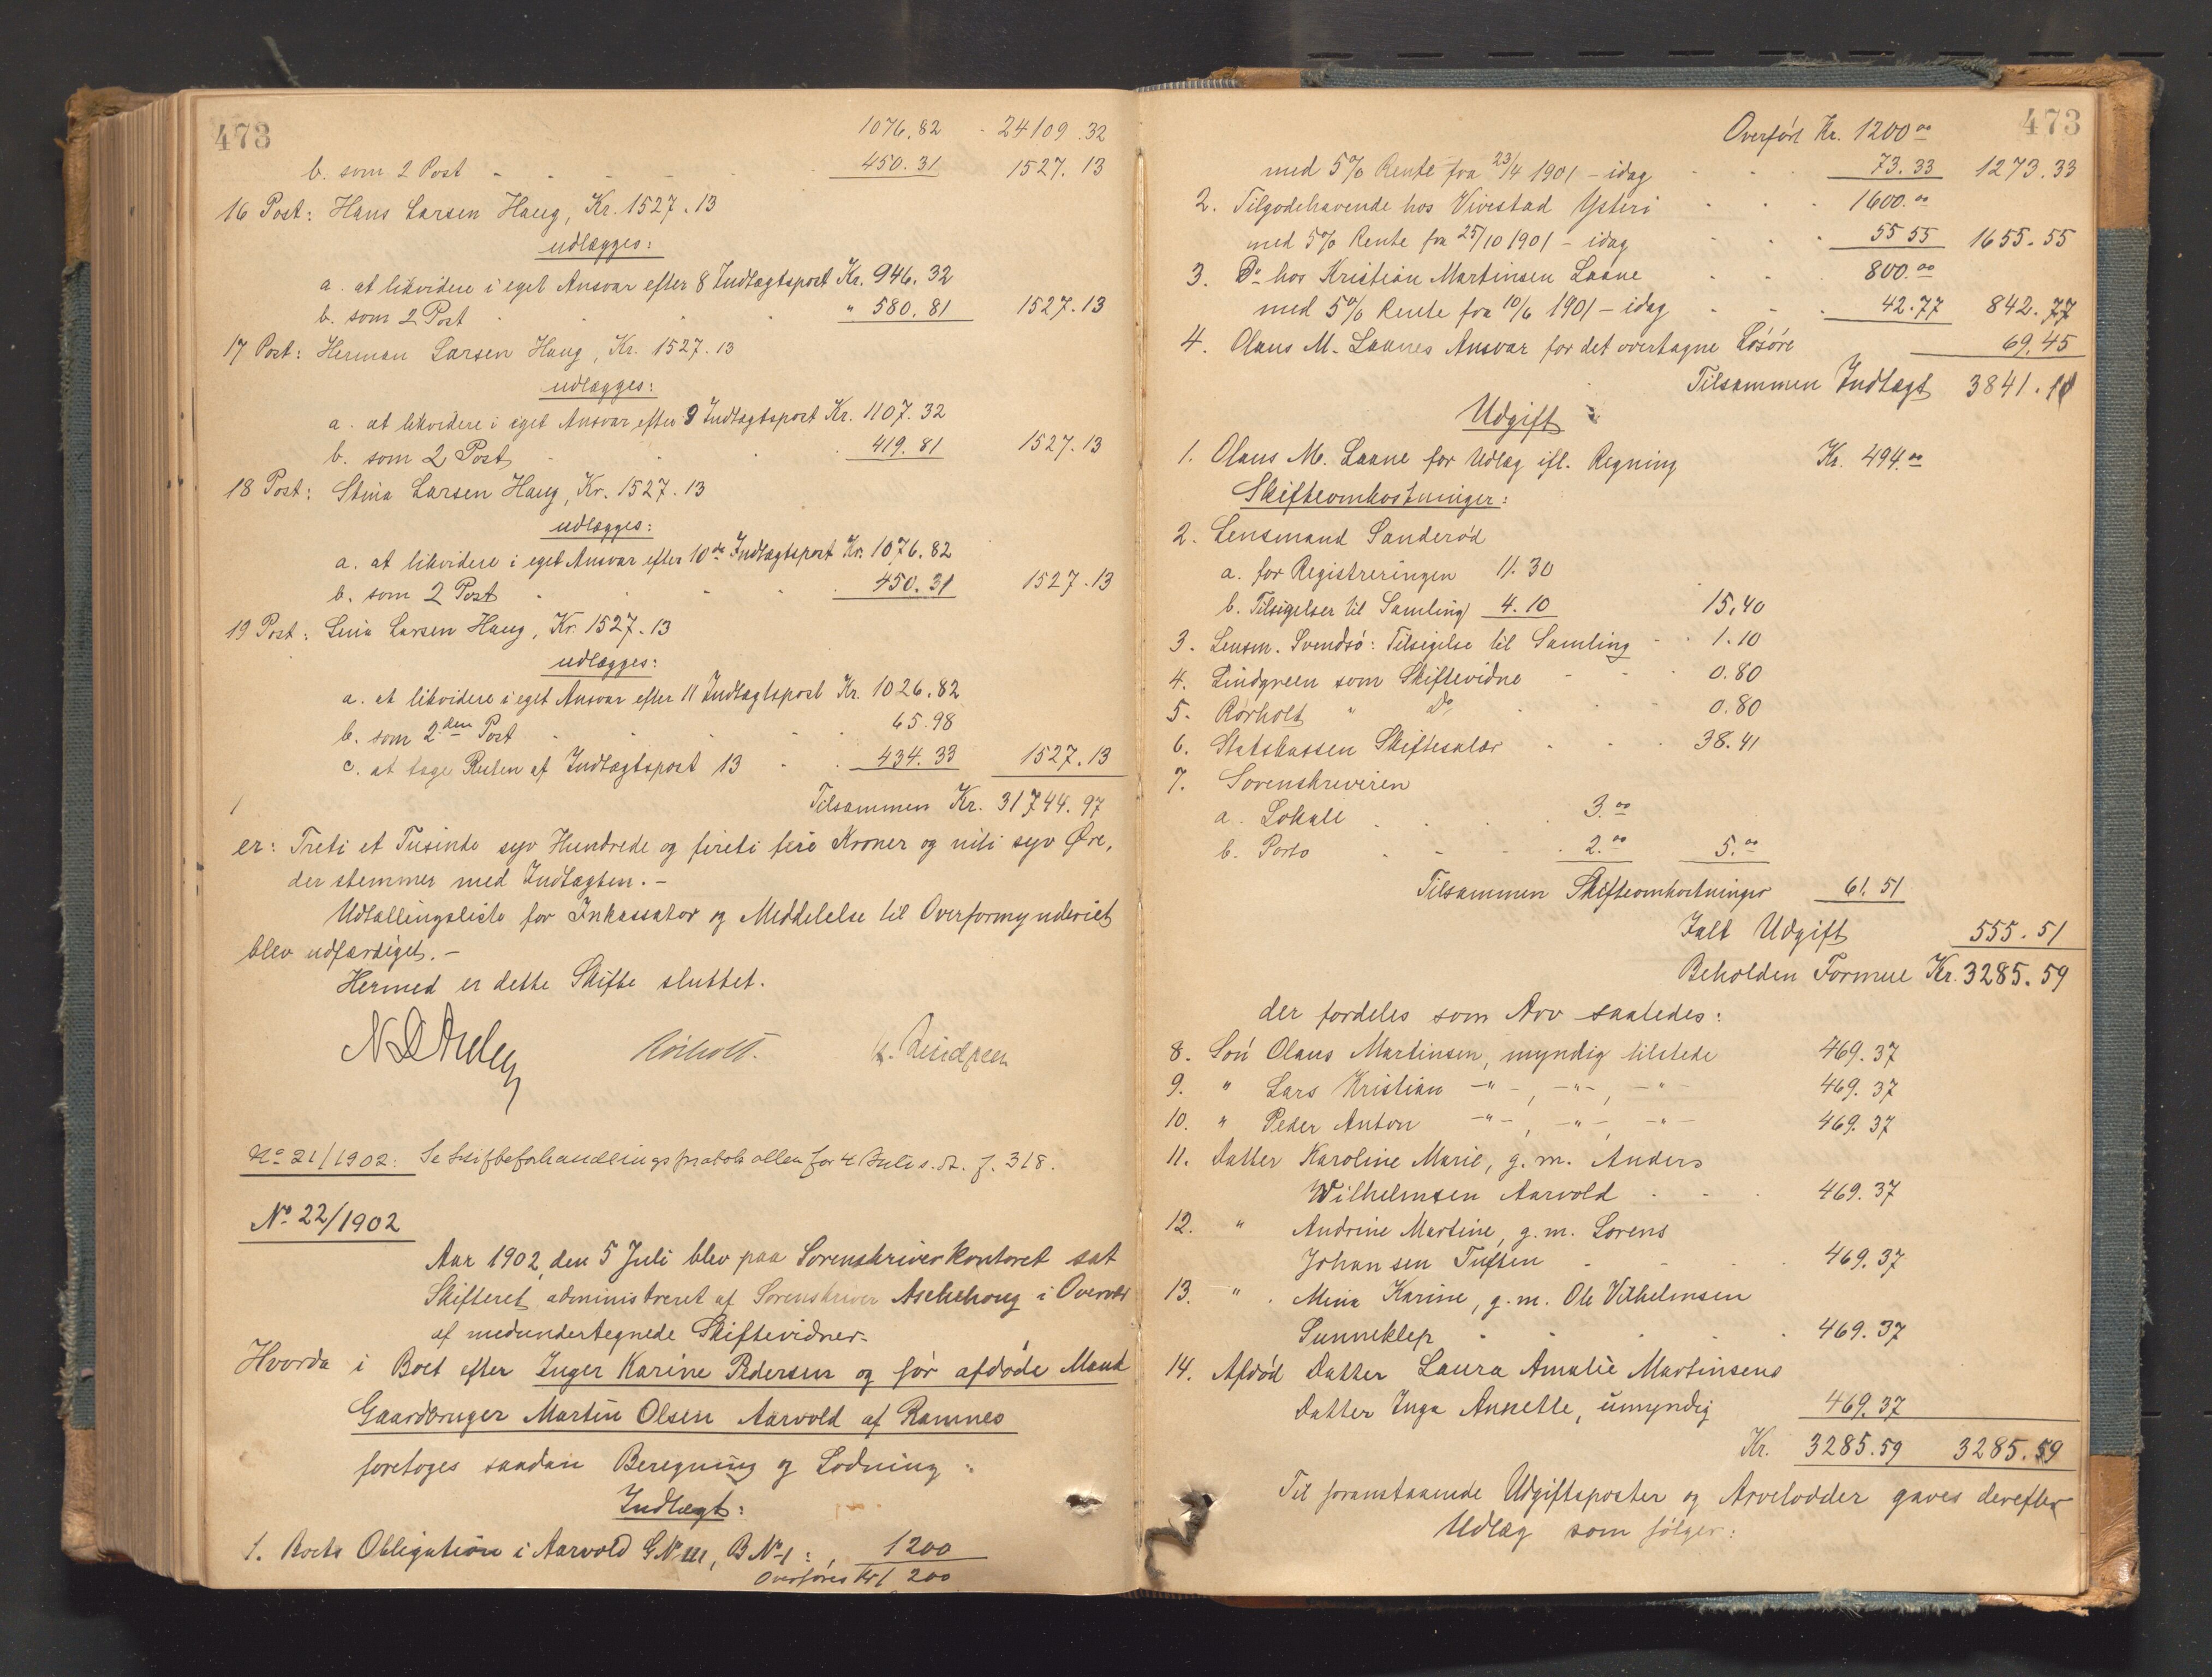 473
1076.82 - 24109.32
b. som 2 Post - 450.31 1527.13
16 Post: Hans Larsen Haug, Kr. 1527.13
udlægges:
a. at likvidere i eget Ansvar efter 8 Indtægtspost Kr. 946.32
b. som 2 Post " 580.81 1527.13
17 Post: Herman Larsen Haug, Kr. 1527.13
udlægges:
a. at likvidere i eget Ansvar efter 9 Indtægtspost Kr. 1107.32
b. som 2 Post 419.81 1527.13
18 Post: Stina Larsen Haug, Kr. 1527.13
udlægges:
a. at likvidere i eget Ansvar efter 10de Indtægtspost Kr. 1076.82
b. som 2 Post 450.31 1527.13
19 Post: Lina Larsen Haug, Kr. 1527.13
udlægges:
a. at likvidere i eget Ansvar efter 11 Indtægtspost Kr. 1026.82
b. som 2den Post 65.98
c. at tage Resten af Indtægtspost 13 434.33 1527.13
Tilsammen Kr. 31744.97
er: Treti et Tusinde syv Hundrede og fireti fire Kroner og niti syv Øre,
der stemmer med Indtægten. -
Udtællingsliste for Inkassator og Meddelelse til Overformynderiet
blev udfærdiget. -
Hermed er dette Skifte sluttet.
Rørholt. Lindgreen
No 21/1902: Se Skifteforhandlingsprotokollen for 4 Juli s. A. f. 318.
No 22/1902
Aar 1902, den 5 Juli blev paa Sorenskriverkontoret sat
Skifteret administreret af Sorenskriver Aschehoug i Overvær
af medundertegnede Skiftevidner.
Hvorda i Boet efter Inger Karine Pedersen og før afdøde Mand
Gaardbruger Martin Olsen Aarvold af Ramnes
foretoges saadan Beregning og Lodning:
Indtægt:
1. Boets Obligation i Aarvold G No 111, B No 1: 1200
Overføres Kr 1200
473
Overført Kr. 1200.00
med 5% Rente fra 23/4 1901 - idag 73.33 1273.33
2. Tilgodehavende hos Vivestad Ysteri 1600.00
med 5% Rente fra 25/10 1901 - idag 55 55 1655.55
3. Do hos Kristian Martinsen Laane 800.00
med 5% Rente fra 10/6 1901 - idag 42.77 842.77
4. Olaus M. Laanes Ansvar for det overtagne Løsøre 69.45
Tilsammen Indtægt 3841.10
Udgift:
1. Olaus M. Laane for Udlæg ifl. Regning Kr. 494.00
Skifteomkostninger:
2. Lensmand Sanderød
a. for Registreringen 11.30
b. Tilsigelser til Samling 4.10 15,40
3. Lensm. Svendsø: Tilsigelse til Samling 1.10
4. Lindgreen som Skiftevidne 0.80
5. Rørholt " Do 0.80
6. Statskassen Skiftesalær 38.41
7. Sorenskriveren
a. Lokale 3.00
b. Porto 2.00 5.00
Tilsammen Skifteomkostninger 61.51
Ialt Udgift 555.51
Beholden Formue Kr. 3285.59
der fordeles som Arv saaledes:
8. Søn Olaus Martinsen, myndig tilstede 469.37
9. " Lars Kristian -"-, -"-, -"- 469.37
10. " Peder Anton -"-, -"-, -"- 469.37
11. Datter Karoline Marie, g. m. Anders
Wilhelmsen Aarvold 469.37
12. " Andrine Martine, g. m. Lorens
Johansen Tufsen 469.37
13. " Mina Karine, g. m. Ole Vilhelmsen
Sunneklep 469.37
14. Afdød Datter Laura Amalie Martinsens
Datter Inga Annette, umyndig 469.37
Kr. 3285.59 3285.59
Til foranstaaende Udgiftsposter og Arvelodder gaves derefter
Udlæg som følger: